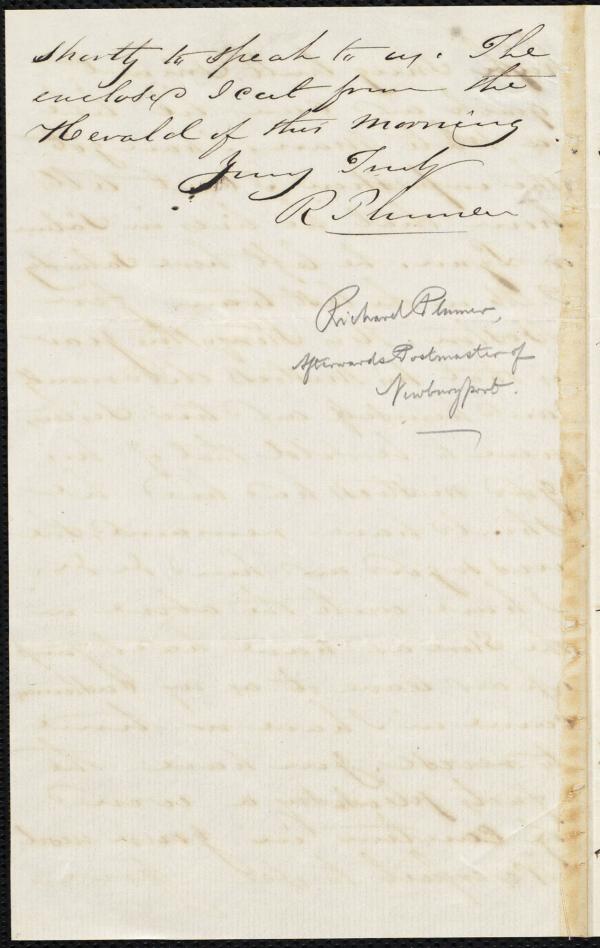 shortly to speak to us. The
enclosed I cut from the
Herald of this morning
Yours Truly
R Plumer
Richard Plumer,
Afterwards Postmaster of
Newburyport.